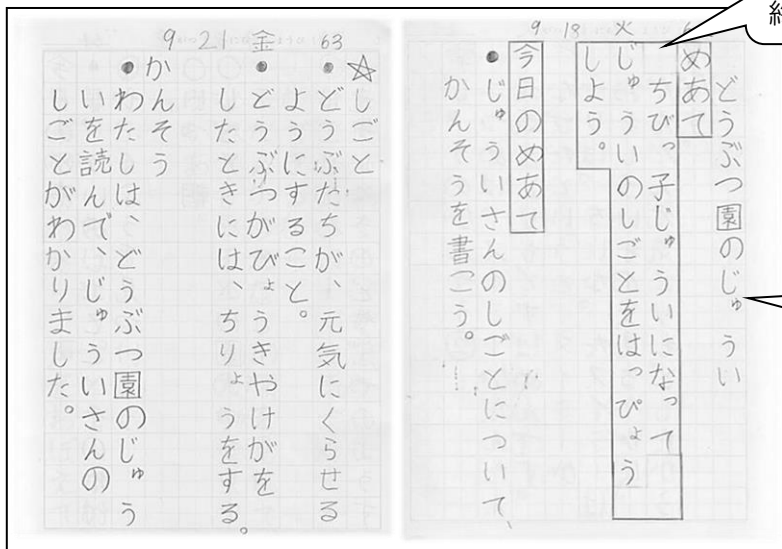 9 18 火
どうぶつ園のじゅうい
めあて
ちびっ子じゅういになって
じゅういのしごとをはっぴょう
しよう。
今日のめあて
●じゅういさんのしごとについて、
かんそうを書こう。
9 21 金 63
☆しごと
●どうぶたちが、元気にくらせる
ようにすること。
●どうぶつがびょうきやけがを
したときには、ちりょうをする。
かんそう
●わたしは、どうぶつ園のじゅう
いを読んで、じゅういさんの
しごとがわかりました。